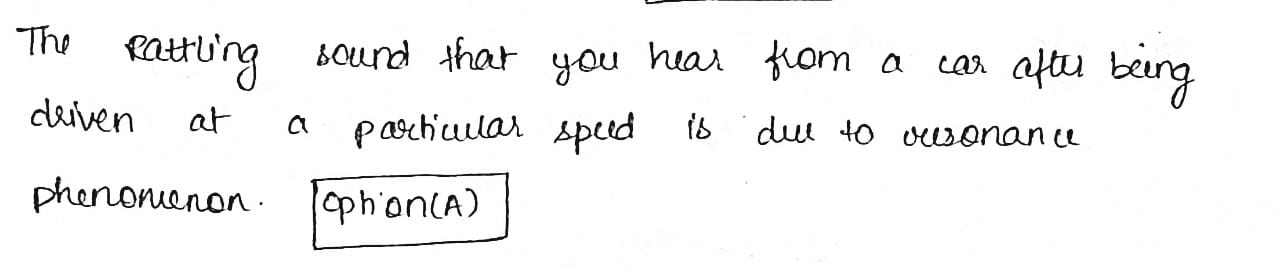 The rattling sound that you hear from a car after being
driven at a particular speed is due to resonance
phenomenon. Option(A)